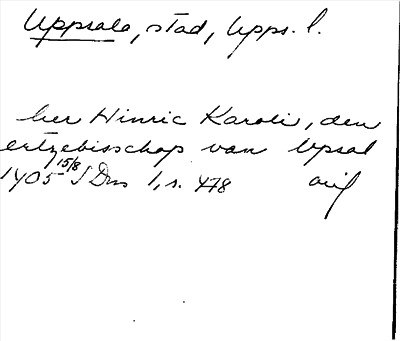 Uppsala, stad, Upps. l.
her Hinric Karoli, den
ertzebisschop van Upsal
1405 15/8 SDns 1, s. 478 avf